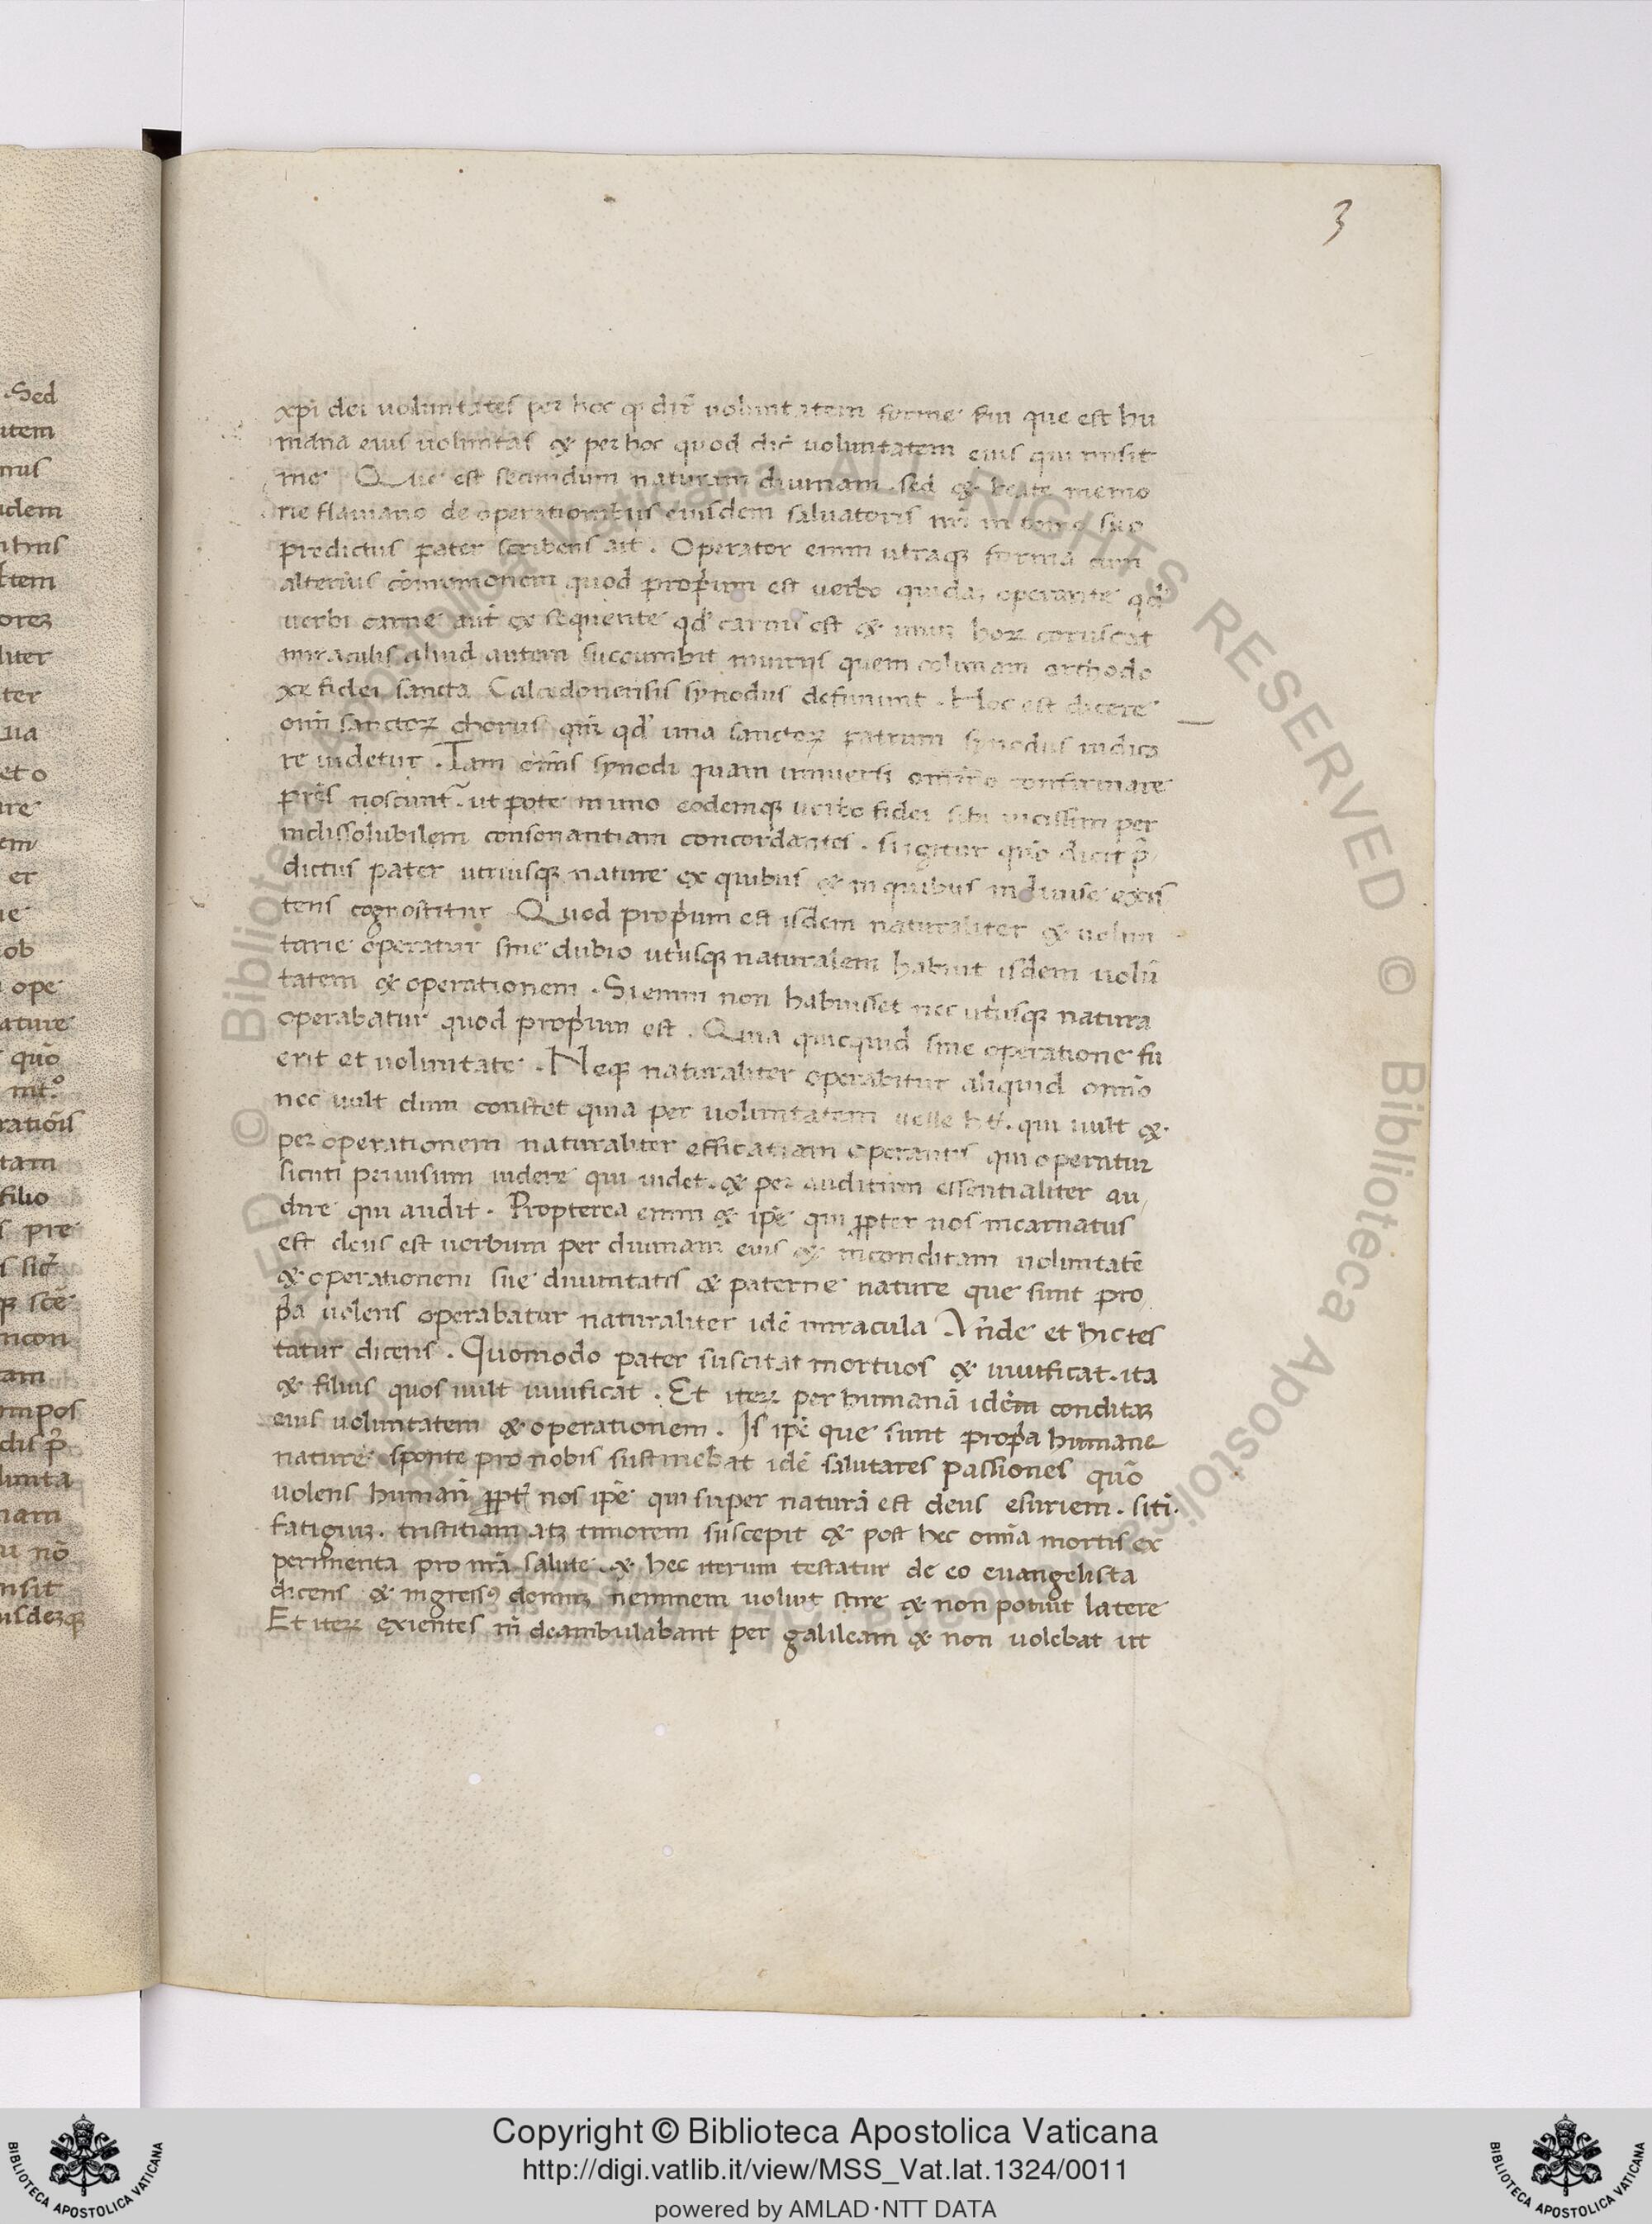 3
xpi dei uoluntates per hoc q dic̄ uoluntatem forme sui que est hu
mana eius uoluntas & per hoc quod dic̄ uoluntatem eius qui misit
me Que est secundum naturam diuinam. sed & beate memo
rie flauiano de operationibus eiusdem saluatoris nr̄i in tomo suo
predictus pater scribens ait. Operatur enim utraqꝫ forma cum
alterius com̄unionem quod proprium est uerbo quidaꝫ operante qd̄
uerbi carne aut̄ exsequente qd̄ carnis est & unuꝫ hoꝝ coruscat
miraculis aliud autem succumbit iniuriis quem columnam orthodo
xe fidei sancta Calcedonensis synodus definiunt. Hoc est dicere
om̄i sanctoꝝ chorus qm̄ qd̄ una sanctoꝝ patrum synodus iudica
re uidetur. Iam om̄is synodi quam uniuersi om̄ino confirmare
pr̄es noscunt̄. ut pote in uno eodemqꝫ uerbo fidei sibi uicissim per
indissolubilem consonantiam concordantes. si igitur quō dicit p̄
dictus pater utriusqꝫ nature ex quibus & in quibus indiuise exis
tens cognoscitur Quod proprium est isdem naturaliter & uolun
tarie operatur sine dubio utriusqꝫ naturalem habuit isdem uolū
tatem & operationem. Si enim non habuisset nec utriusqꝫ natura
operabatur quod proprium est. Quia quicquid sine operatione fu
erit et uoluntate. Neqꝫ naturaliter operabitur aliquid om̄io
nec uult dum constet quia per uoluntatem uelle ht̄. qui uult &
per operationem naturaliter efficatiam operantis qui operatur
sicuti per uisum uidere qui uidet. & per auditum essentialiter au
dire qui audit. Propterea enim & ipē qui ꝓpter nos incarnatus
est deus est uerbum per diuinam eius & inconditam uoluntatē
& operationem sue diuinitatis & paterne nature que sunt pro
p̄a uolens operabatur naturaliter idē miracula Vn̄de et hic tes
tatur dicens. Quomodo pater suscitat mortuos & uiuificat. ita
& filius quos uult uiuificat. Et iteꝝ per humanā idem conditaꝫ
eius uoluntatem & operationem. Is ipē que sunt propria humane
nature sponte pro nobis sustinebat idē salutares passiones quō
uolens human̄ ꝓpt̄ nos ipē qui super naturā est deus esuriem. siti.
fatiguꝫ. tristitiam atꝫ timorem suscepit & post hec omīa mortis ex
perimenta pro nr̄a salute. & hec iterum testatur de eo euangelista
dicens & ingressꝰ domuꝫ neminem uoluit scire & non potuit latere
Et iteꝝ exientes in̄ deambulabant per galileam & non uolebat ut
Copyright © Biblioteca Apostolica Vaticana
http://digi.vatlib.it/view/MSS_Vat.lat.1324/0011
powered by AMLAD·NTT DATA